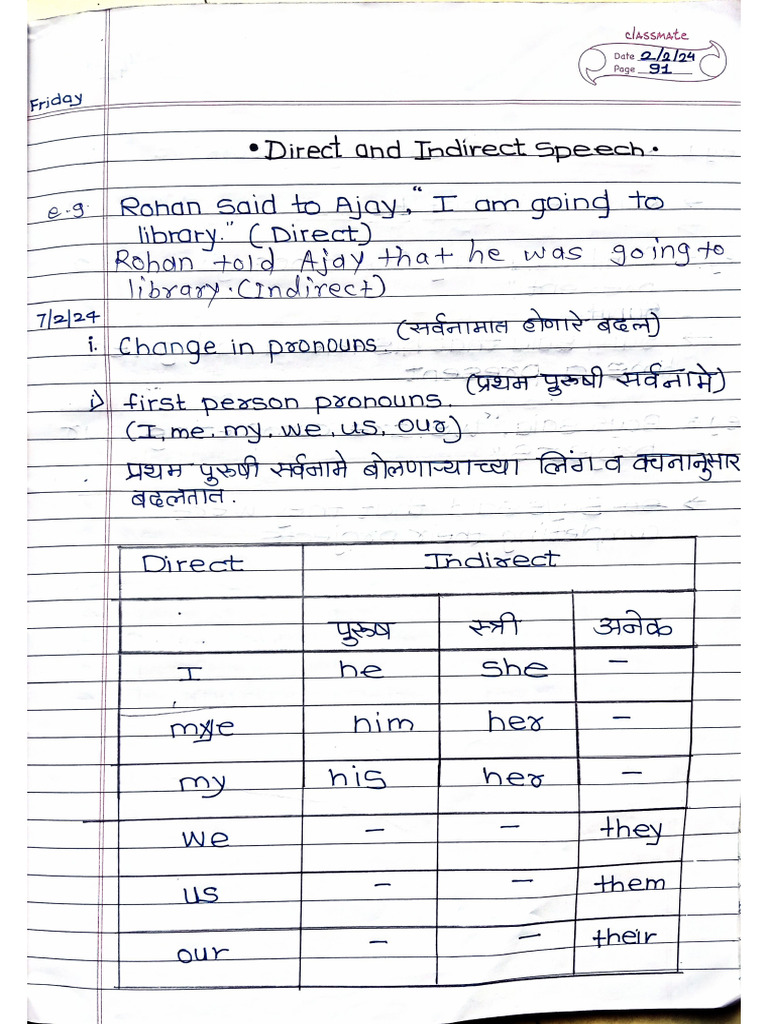 classmate
Date 2/2/24
Page 91
Friday
• Direct and Indirect Speech •
e.g. Rohan said to Ajay, "I am going to
library." (Direct)
Rohan told Ajay that he was going to
library. (Indirect)
7/2/24
i. Change in pronouns (सर्वनामात होणारे बदल)
i) first person pronouns. (प्रथम पुरूषी सर्वनामे)
(I, me, my, we, us, our)
प्रथम पुरूषी सर्वनामे बोलणाऱ्याच्या लिंग व वचनानुसार
बदलतात.
Direct Indirect
पुरूष स्त्री अनेक
I he she –
me him her –
my his her –
we – – they
us – – them
our – – their